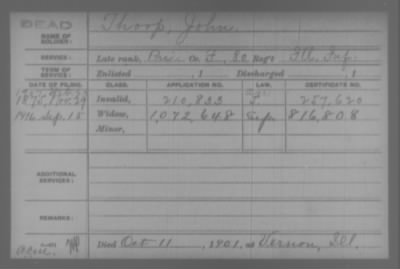 DEAD
NAME OF SOLDIER: Thoop, John.
SERVICE: Late rank, Priv. Co. F, 80 Reg't Ill. Inf.
TERM OF SERVICE: Enlisted , 1 Discharged , 1
DATE OF FILING. CLASS. APPLICATION NO. LAW. CERTIFICATE NO.
1875, Nov. 29 Invalid, 210,833 257,620
1916 Sep. 15 Widow, 1,072,648 816,808
Minor,
ADDITIONAL SERVICES:
REMARKS:
Died Oct 11, 1901, at Vernon, Ill.